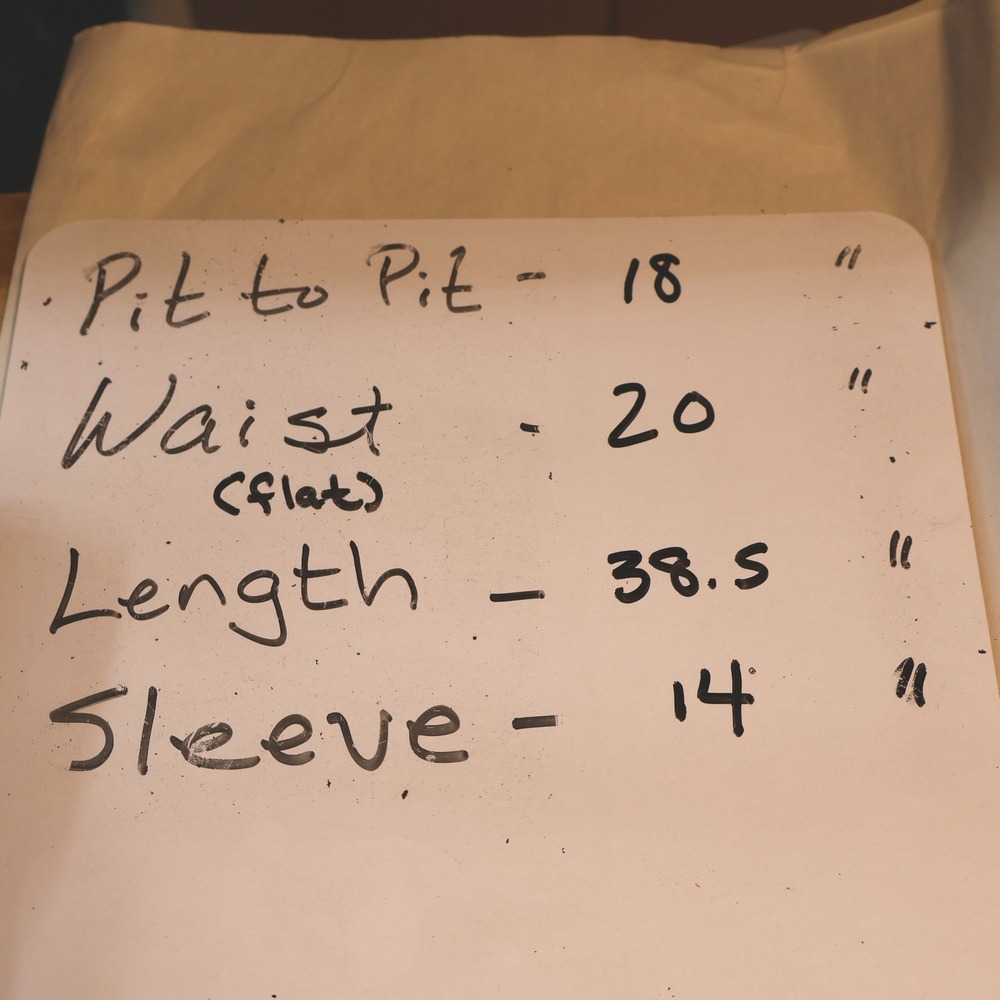 Pit to Pit - 18 "
Waist - 20 "
(flat)
Length - 38.5 "
Sleeve - 14 "